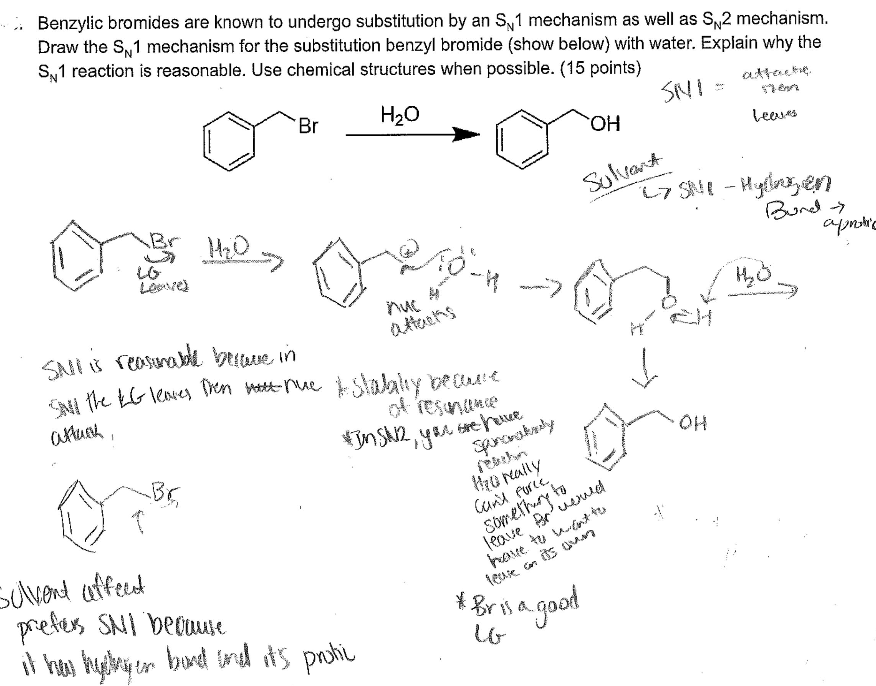 Benzylic bromides are known to undergo substitution by an SN1 mechanism as well as SN2 mechanism.
Draw the SN1 mechanism for the substitution benzyl bromide (show below) with water. Explain why the
SN1 reaction is reasonable. Use chemical structures when possible. (15 points)
SN1 =
Leaves
Br
H2O
OH
Solvant
↳ SN1 - Hydrogen
Bond →
aprotic
Br
LG
Leaves
H2O
⊕
:O-H
H
nuc
attacks
O
H
H
H2O
OH
SN1 is reasonable because in
SN1 the LG leaves then nuc
attack,
+ stabality because
of resonance
*In SN2, you have
reaction
H2O really
cant force
something to
leave Br would
have to want to
leave on its own
Br
* Br is a good
LG
Solvent affect
prefers SN1 because
it has hydrogen bond and its protic